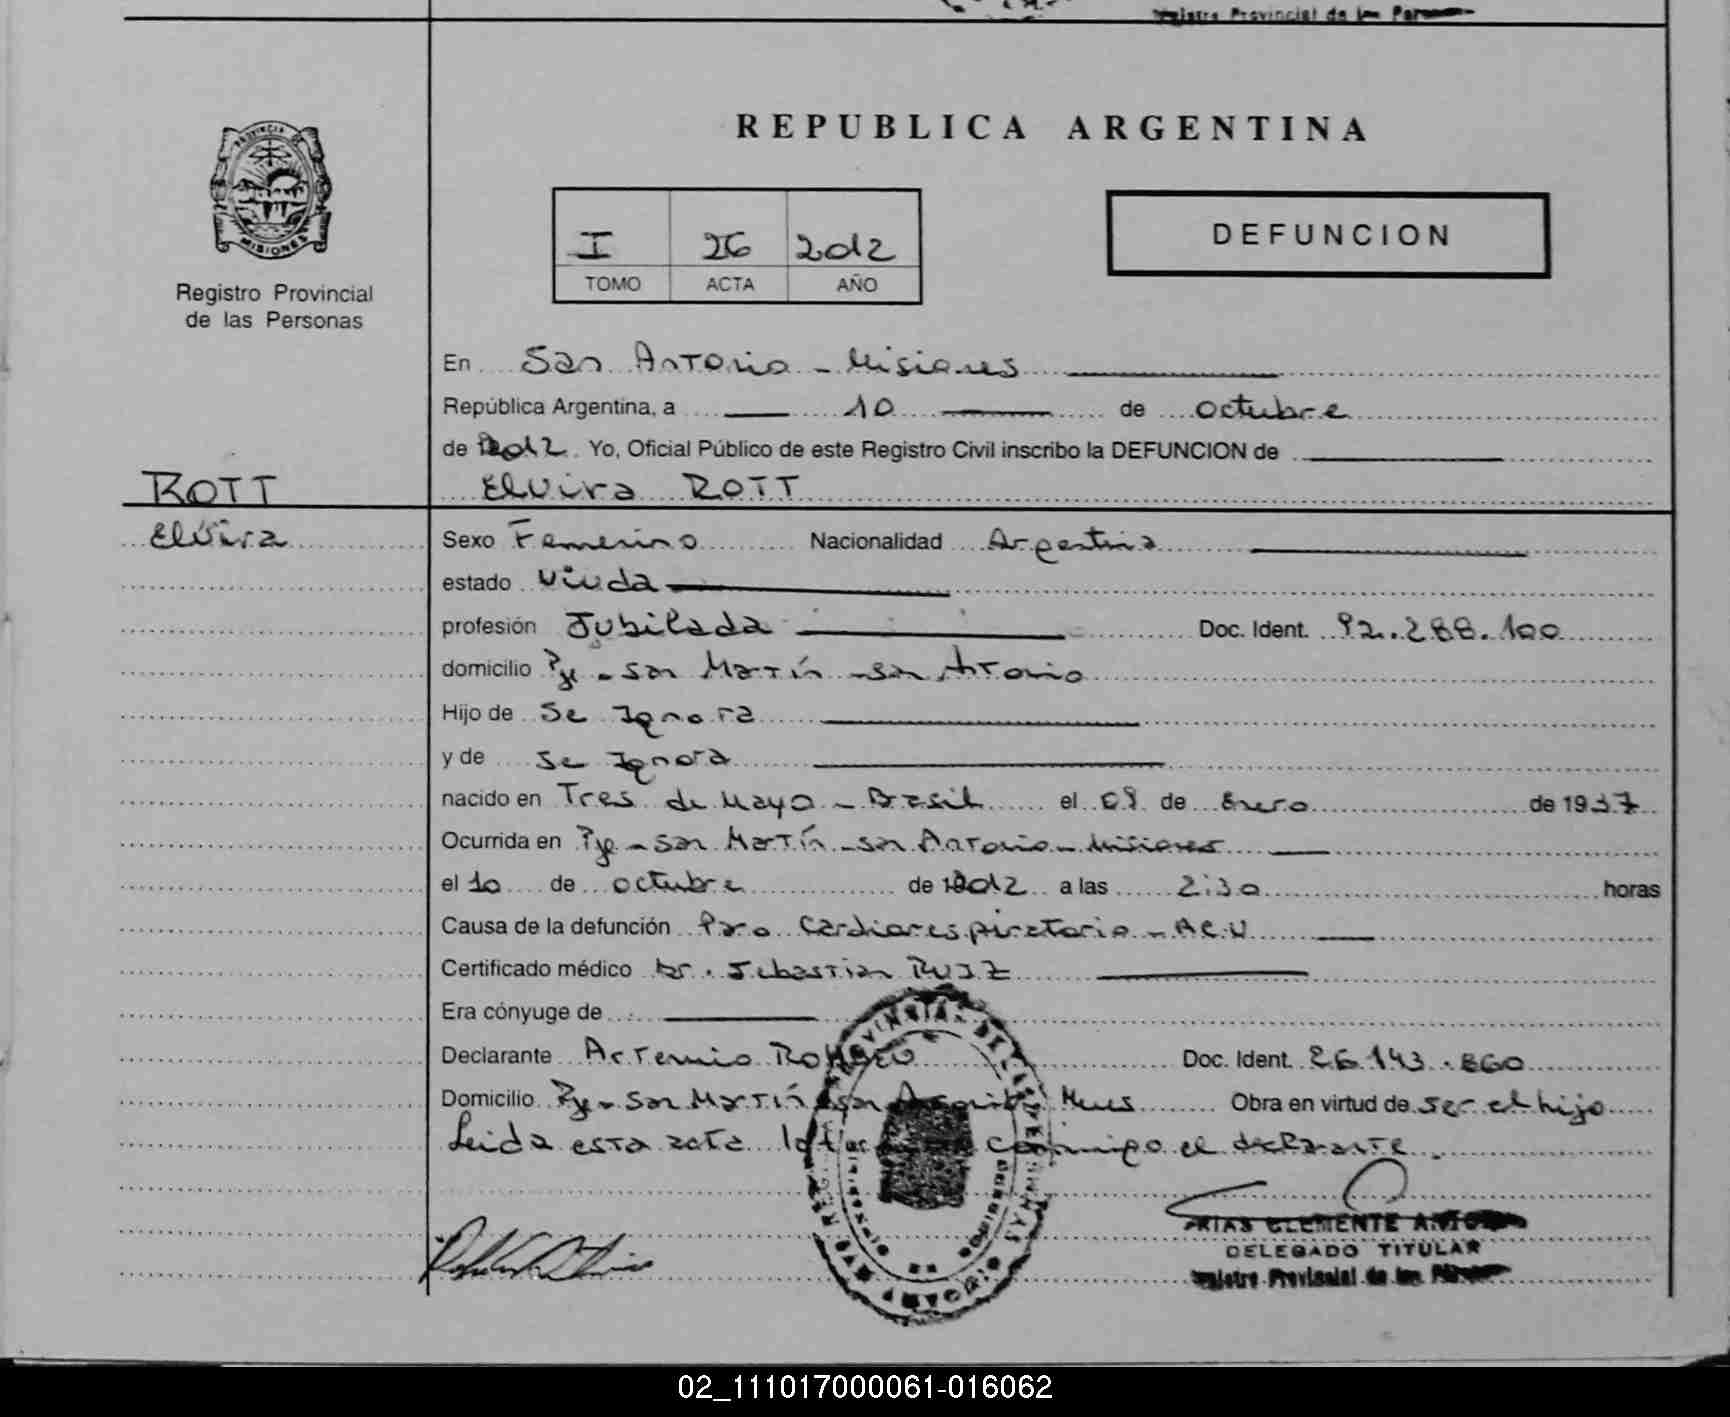 Registro Provincial de las Personas
PROVINCIA DE
MISIONES
Registro Provincial
de las Personas
REPUBLICA ARGENTINA
I 26 2012
TOMO ACTA AÑO
DEFUNCION
En San Antonio - Misiones
República Argentina, a 10 de octubre
de 2012. Yo, Oficial Público de este Registro Civil inscribo la DEFUNCION de
ROTT
Elvira ROTT
Elvira
Sexo Femenino Nacionalidad Argentina
estado Viuda
profesión Jubilada Doc. Ident. 92.288.100
domicilio Pje - San Martín - San Antonio
Hijo de Se Ignora
y de Se Ignora
nacido en Tres de Mayo - Brasil el 09 de Enero de 1937
Ocurrida en Pje - San Martín - San Antonio - Misiones
el 10 de octubre de 2012 a las 2:30 horas
Causa de la defunción Paro Cardiorespiratorio - ACV
Certificado médico Dr. Sebastian RUIZ
Era cónyuge de
Declarante Artemio Doc. Ident. 26.143.860
Domicilio Pje - San Martín San Mnes Obra en virtud de ser el hijo
Leida esta acta la conmigo el declarante.
ARIAS CLEMENTE
DELEGADO TITULAR
Registro Provincial de las
02_111017000061-016062